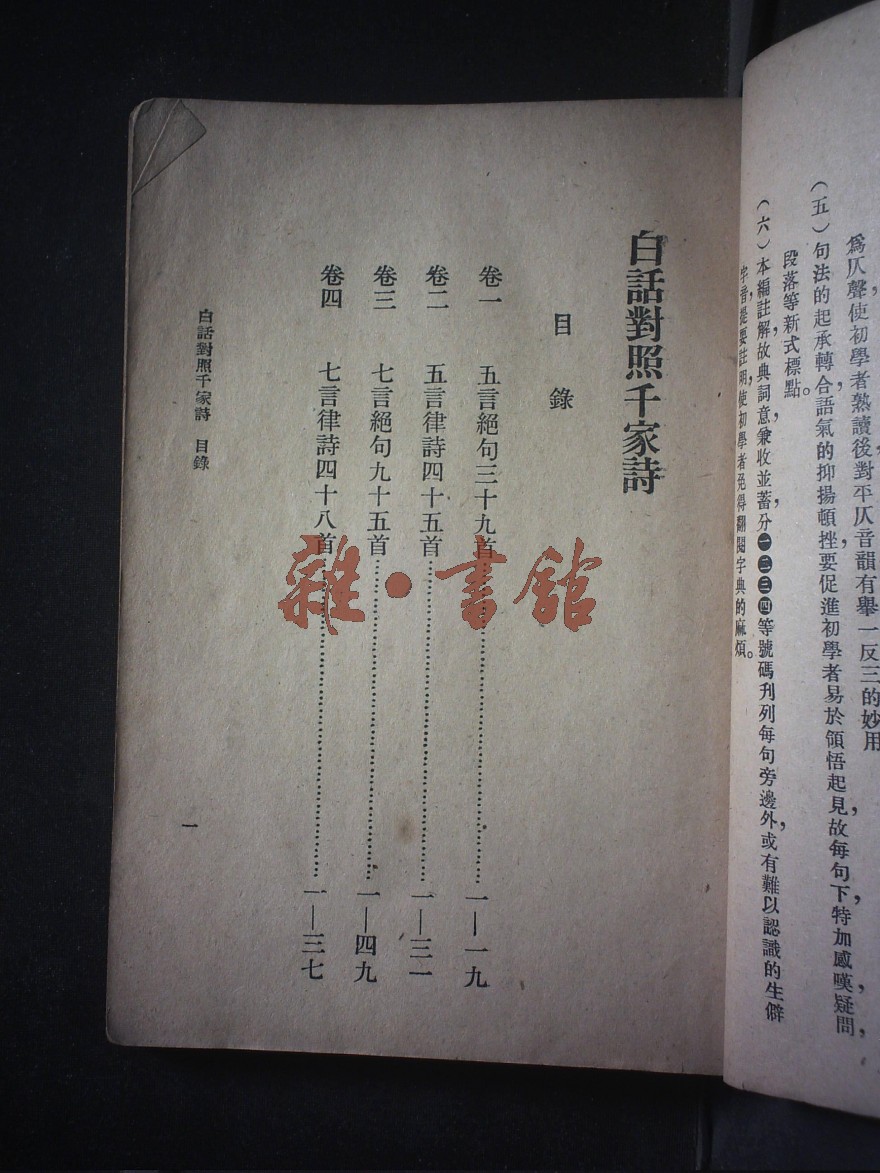 爲仄聲使初學者熟讀後，對平仄音韻有舉一反三的妙用
（五）句法的起承轉合，語氣的抑揚頓挫，要促進初學者易於領悟起見，故每句下特加感嘆，疑問，
段落等新式標點。
（六）本編註解，故典詞意，兼收並蓄，分一二三四等號碼，刋列每句旁邊外，或有難以認識的生僻
字音，提要註明，使初學者免得翻閱字典的麻煩。
白話對照千家詩
目錄
卷一 五言絕句三十九首……一—一九
卷二 五言律詩四十五首……一—三一
卷三 七言絕句九十五首……一—四九
卷四 七言律詩四十八首……一—三七
白話對照千家詩 目錄
一
雜·書館